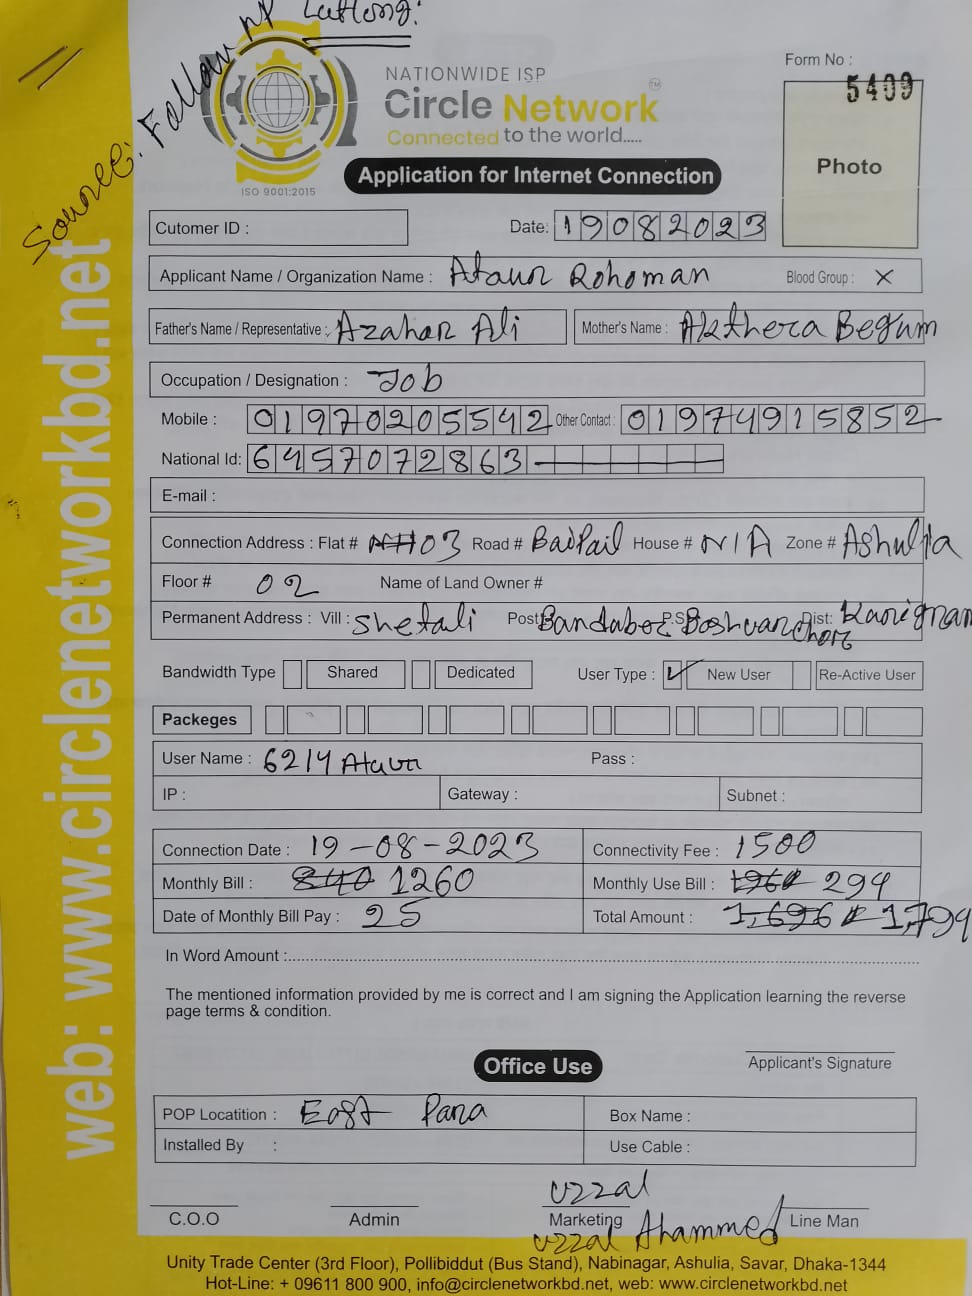 Source: Follow up Lutlong:
NATIONWIDE ISP
Circle Network™
Connected to the world.....
ISO 9001:2015
Application for Internet Connection
Form No :
5409
Photo
Cutomer ID :
Date: 19082023
Applicant Name / Organization Name : Ataur Rohoman Blood Group : X
Father's Name / Representative : Azahar Ali Mother's Name : Akthera Begum
Occupation / Designation : Job
Mobile : 01970205542 Other Contact : 01974915852
National Id: 6457072863
E-mail :
Connection Address : Flat # 03 Road # Baipail House # N/A Zone # Ashulia
Floor # 02 Name of Land Owner #
Permanent Address : Vill : Shetali Post: Bandaber P.S: Dist:
Bandwidth Type Shared Dedicated User Type : ✓ New User Re-Active User
Packeges
User Name : 6214 Ataur Pass :
IP : Gateway : Subnet :
Connection Date : 19-08-2023 Connectivity Fee : 1500
Monthly Bill : 840 1260 Monthly Use Bill : 196 294
Date of Monthly Bill Pay : 25 Total Amount : 1,696 1,794
In Word Amount :
The mentioned information provided by me is correct and I am signing the Application learning the reverse
page terms & condition.
Applicant's Signature
Office Use
POP Locatition : East Para Box Name :
Installed By : Use Cable :
Uzzal
C.O.O Admin Marketing Line Man
Uzzal Ahammed
Unity Trade Center (3rd Floor), Pollibiddut (Bus Stand), Nabinagar, Ashulia, Savar, Dhaka-1344
Hot-Line: + 09611 800 900, info@circlenetworkbd.net, web: www.circlenetworkbd.net
web: www.circlenetworkbd.net